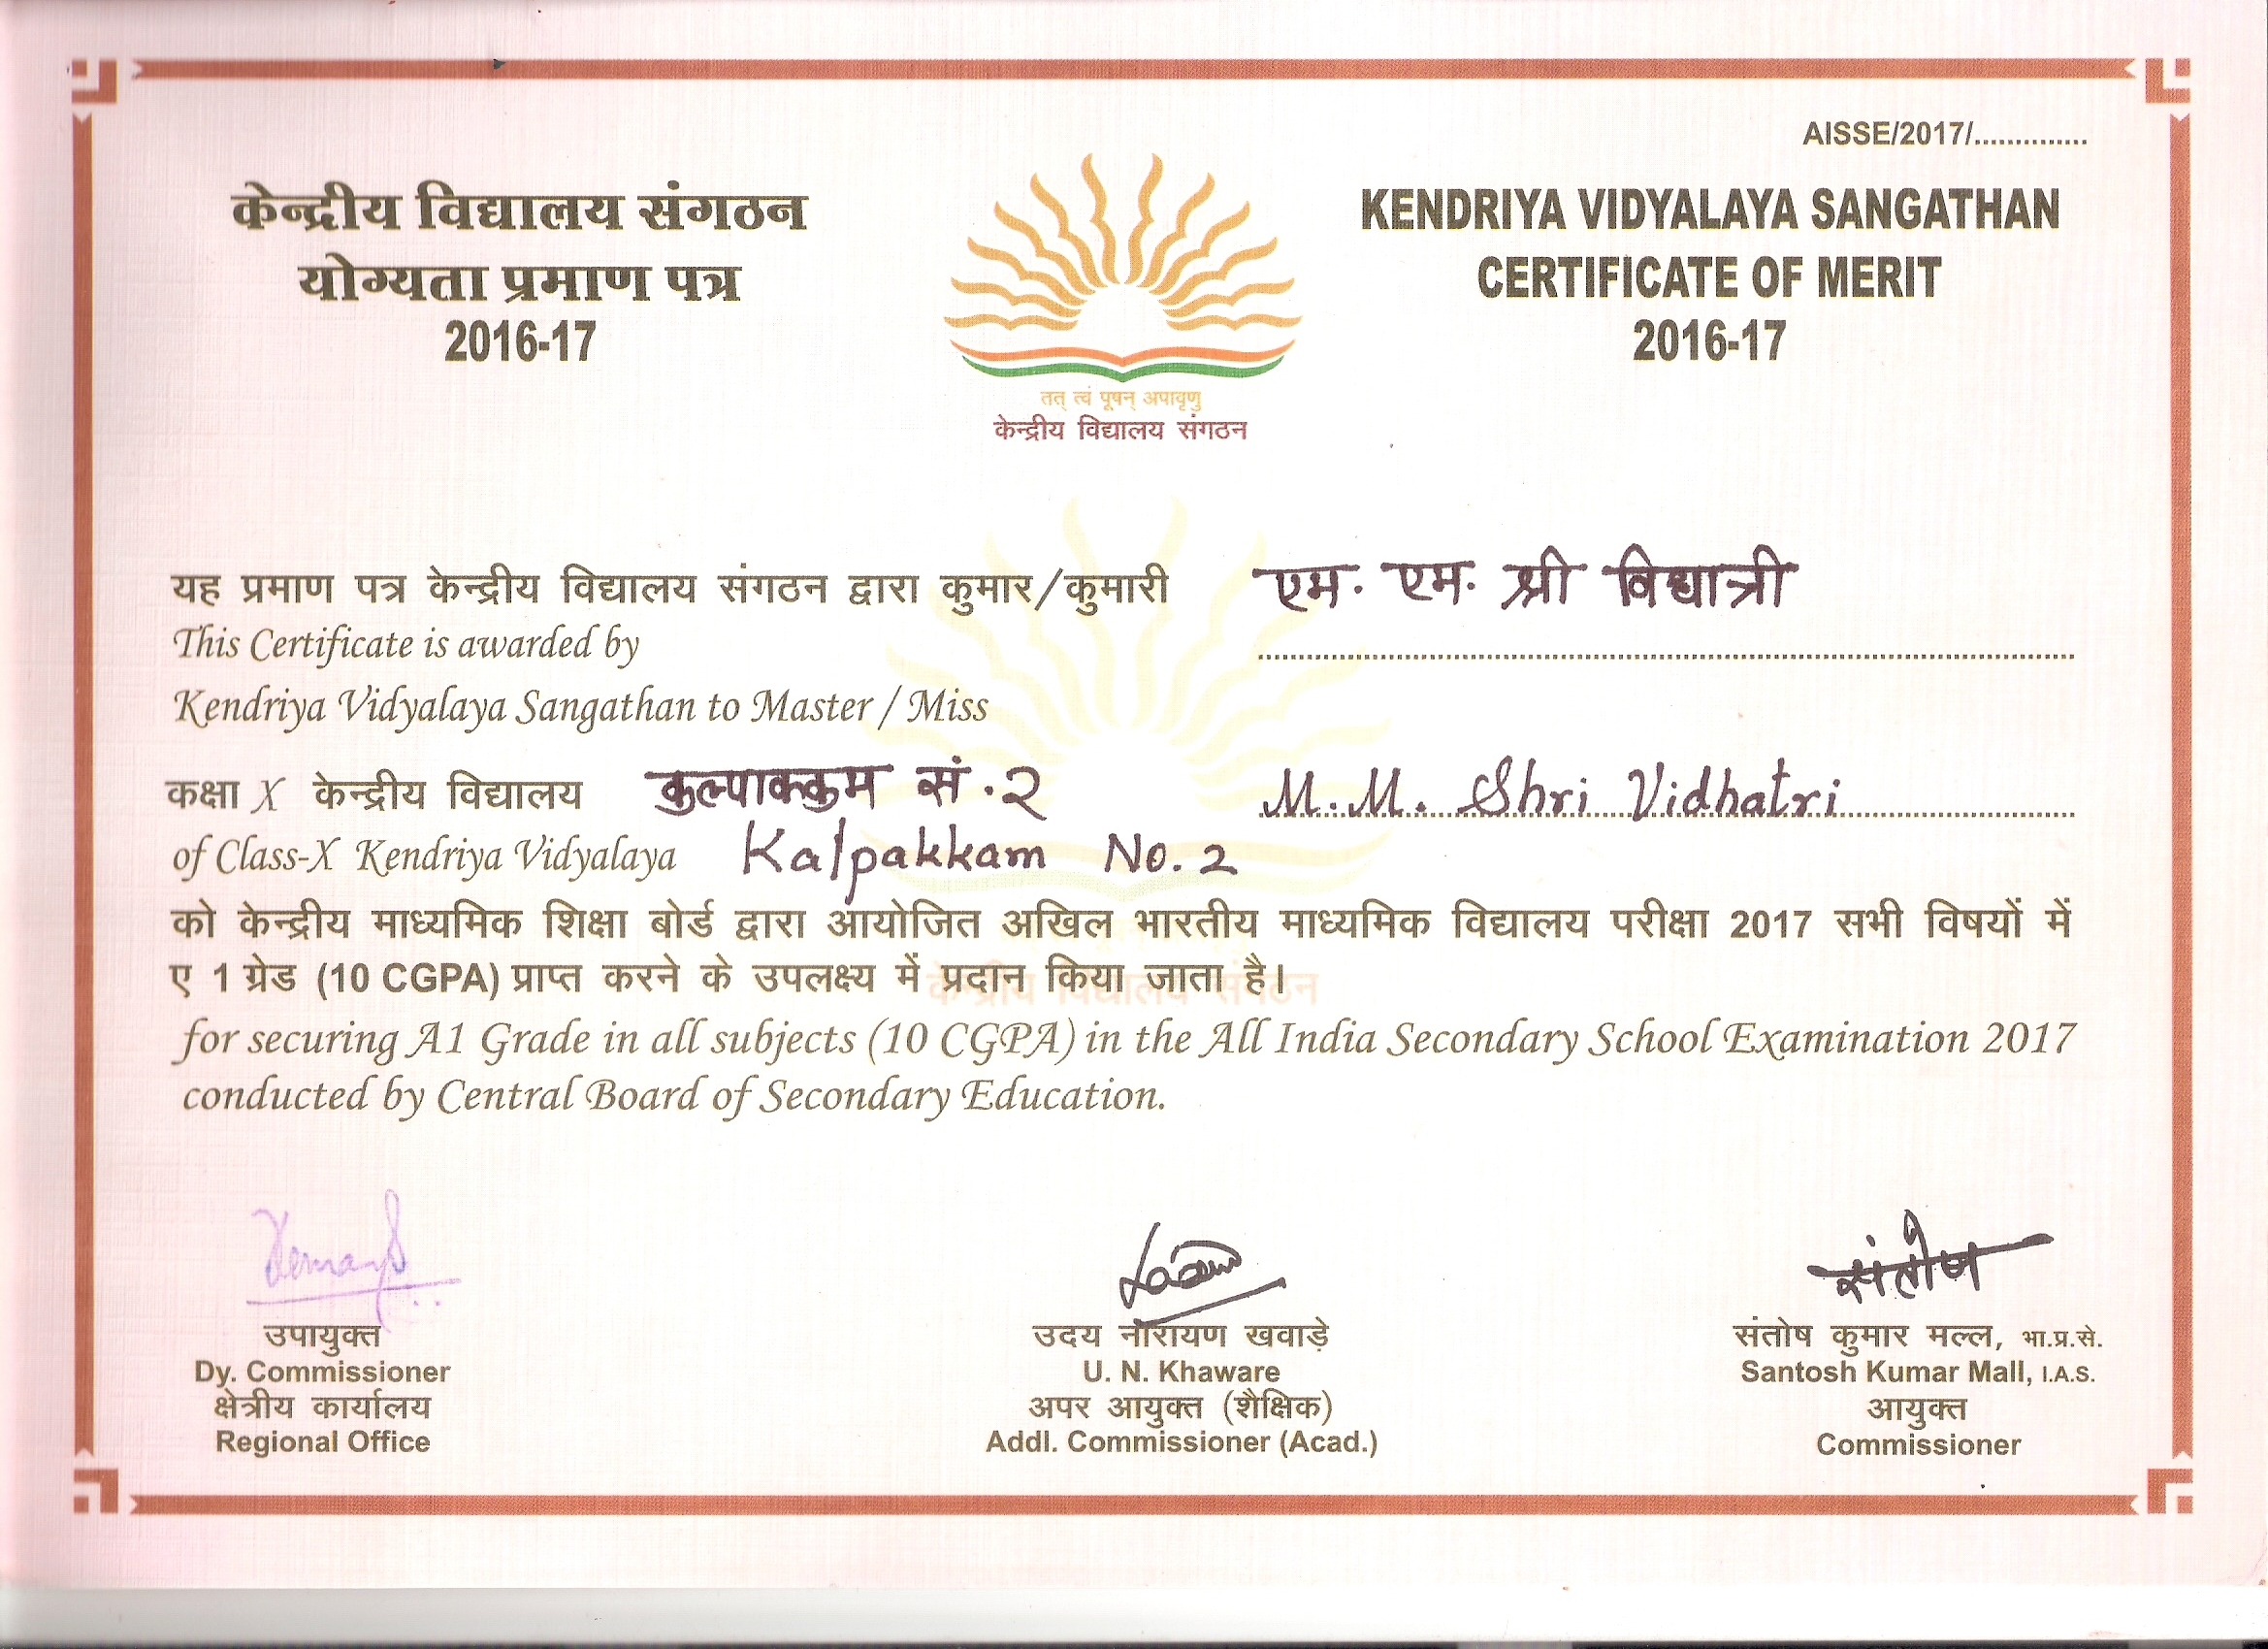 AISSE/2017/..............
केन्द्रीय विद्यालय संगठन
योग्यता प्रमाण पत्र
2016-17
KENDRIYA VIDYALAYA SANGATHAN
CERTIFICATE OF MERIT
2016-17
तत् त्वं पूषन् अपावृणु
केन्द्रीय विद्यालय संगठन
यह प्रमाण पत्र केन्द्रीय विद्यालय संगठन द्वारा कुमार/कुमारी एम. एम. श्री विधात्री
This Certificate is awarded by
Kendriya Vidyalaya Sangathan to Master / Miss
कक्षा X केन्द्रीय विद्यालय कुल्पाक्कुम सं.२ M.M. Shri Vidhatri
of Class-X Kendriya Vidyalaya Kalpakkam No.2
को केन्द्रीय माध्यमिक शिक्षा बोर्ड द्वारा आयोजित अखिल भारतीय माध्यमिक विद्यालय परीक्षा 2017 सभी विषयों में
ए 1 ग्रेड (10 CGPA) प्राप्त करने के उपलक्ष्य में प्रदान किया जाता है।
केन्द्रीय विद्यालय संगठन
for securing A1 Grade in all subjects (10 CGPA) in the All India Secondary School Examination 2017
conducted by Central Board of Secondary Education.
संतोष
उपायुक्त
Dy. Commissioner
क्षेत्रीय कार्यालय
Regional Office
उदय नारायण खवाड़े
U. N. Khaware
अपर आयुक्त (शैक्षिक)
Addl. Commissioner (Acad.)
संतोष कुमार मल्ल, भा.प्र.से.
Santosh Kumar Mall, I.A.S.
आयुक्त
Commissioner